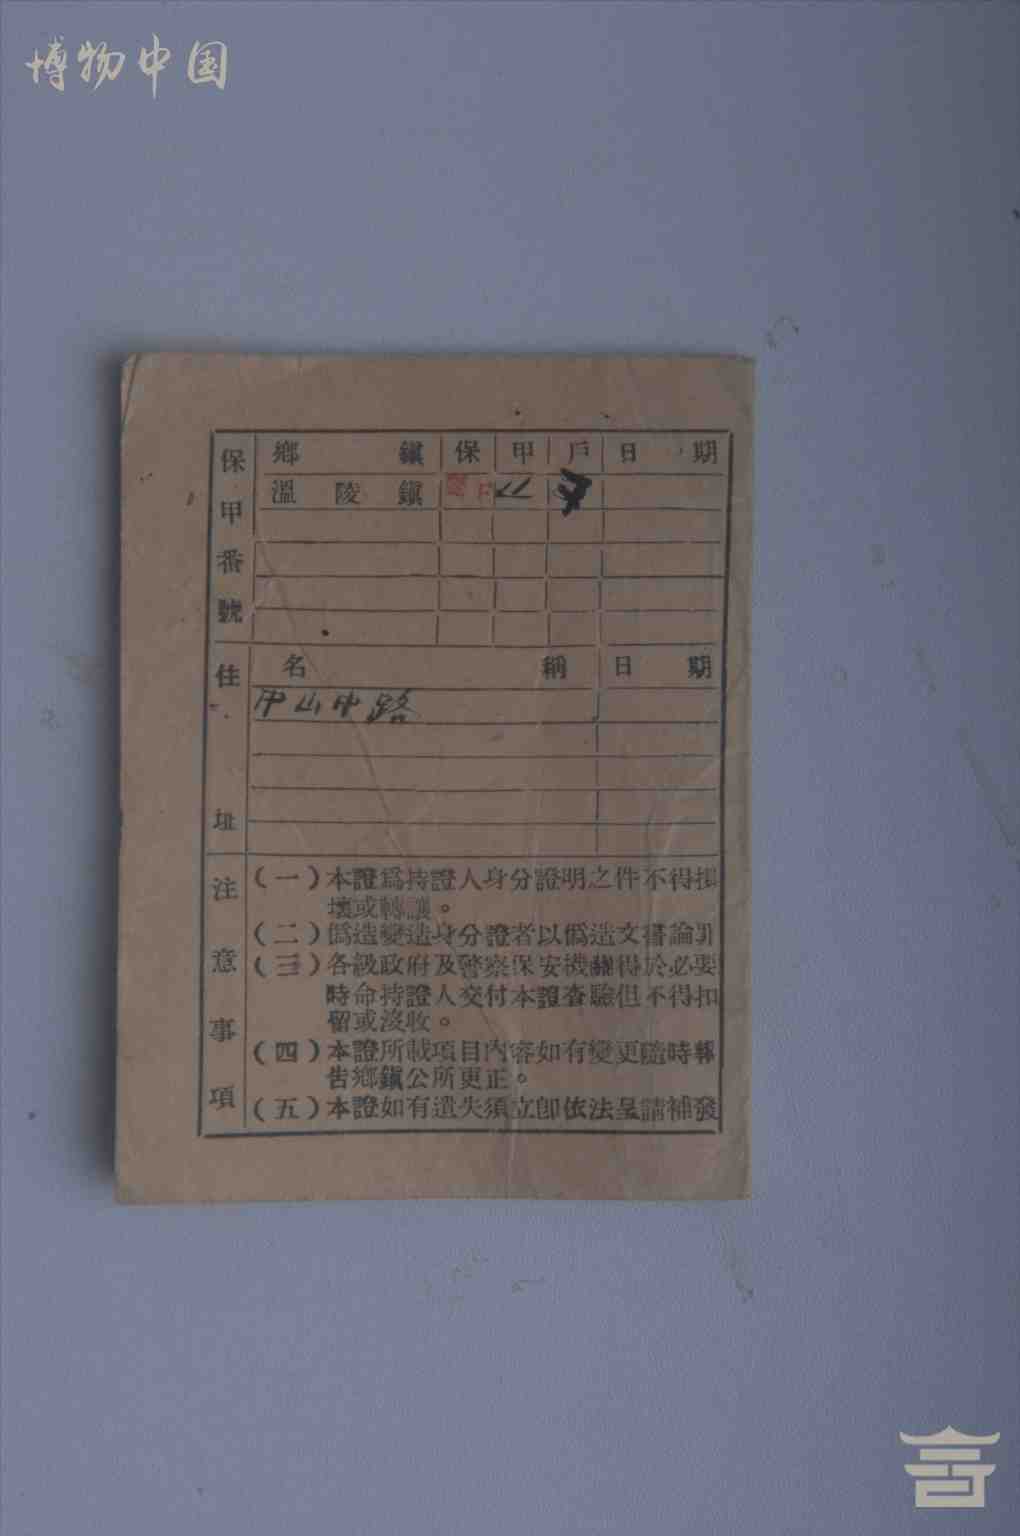 博物中国
保甲番號
鄉鎮 保 甲 戶 日期
溫陵鎮
住址
名稱 日期
中山中路
注意事項
(一)本證爲持證人身分證明之件不得損
壞或轉讓。
(二)僞造變造身分證者以僞造文書論罪
(三)各級政府及警察保安機關得於必要
時命持證人交付本證查驗但不得扣
留或沒收。
(四)本證所載項目內容如有變更隨時報
告鄉鎮公所更正。
(五)本證如有遺失須立卽依法呈請補發